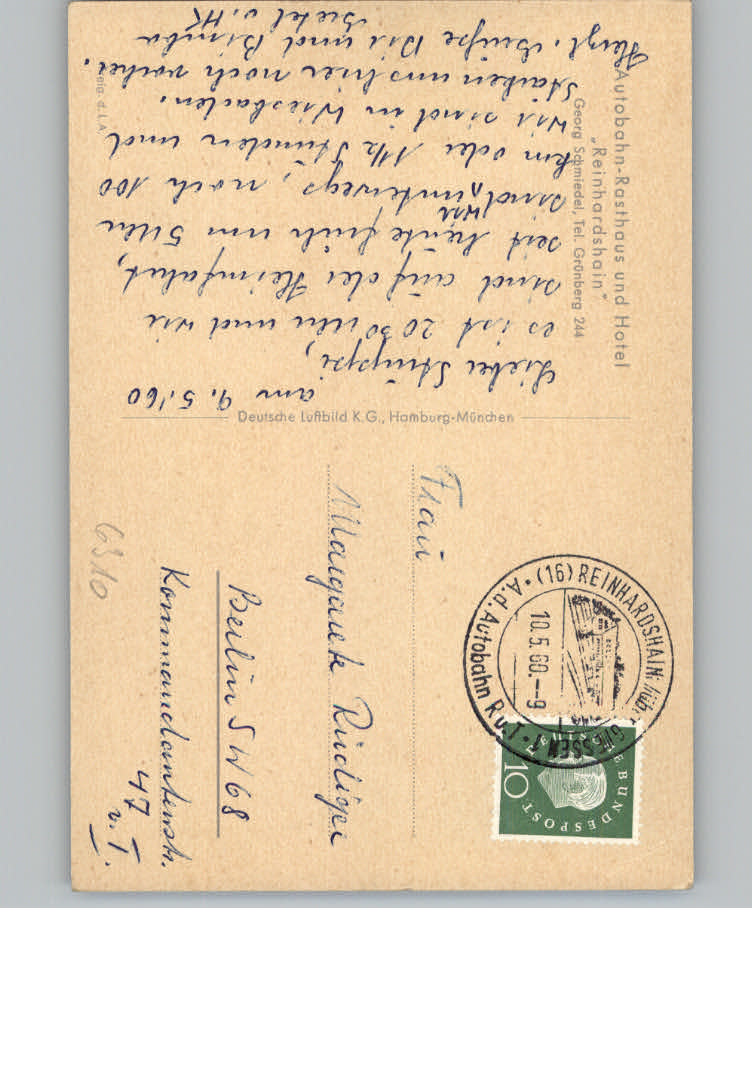 Autobahn-Rasthaus und Hotel
„Reinhardshain"
Georg Schmiedel, Tel. Grünberg 244
am 9.5.60
Lieber Struppi,
es ist 20³⁰ Uhr und wir
sind auf der Heimfahrt,
seit heute früh um 5 Uhr
sind wir unterwegs, noch 100
km oder 1½ Stunden und
wir sind in Wiesbaden.
Stärken uns hier noch vorher.
Herzl. Grüße Dir und Bimba
Deutsche Luftbild K.G., Hamburg-München
Frau
Margarete Rüdiger
Berlin SW 68
Kommandantenstr.
47
v. I.
6310
(16) REINHARDSHAIN
GIESSEN 1
A.d. Autobahn
10.5.60.--9
DEUTSCHE BUNDESPOST
10